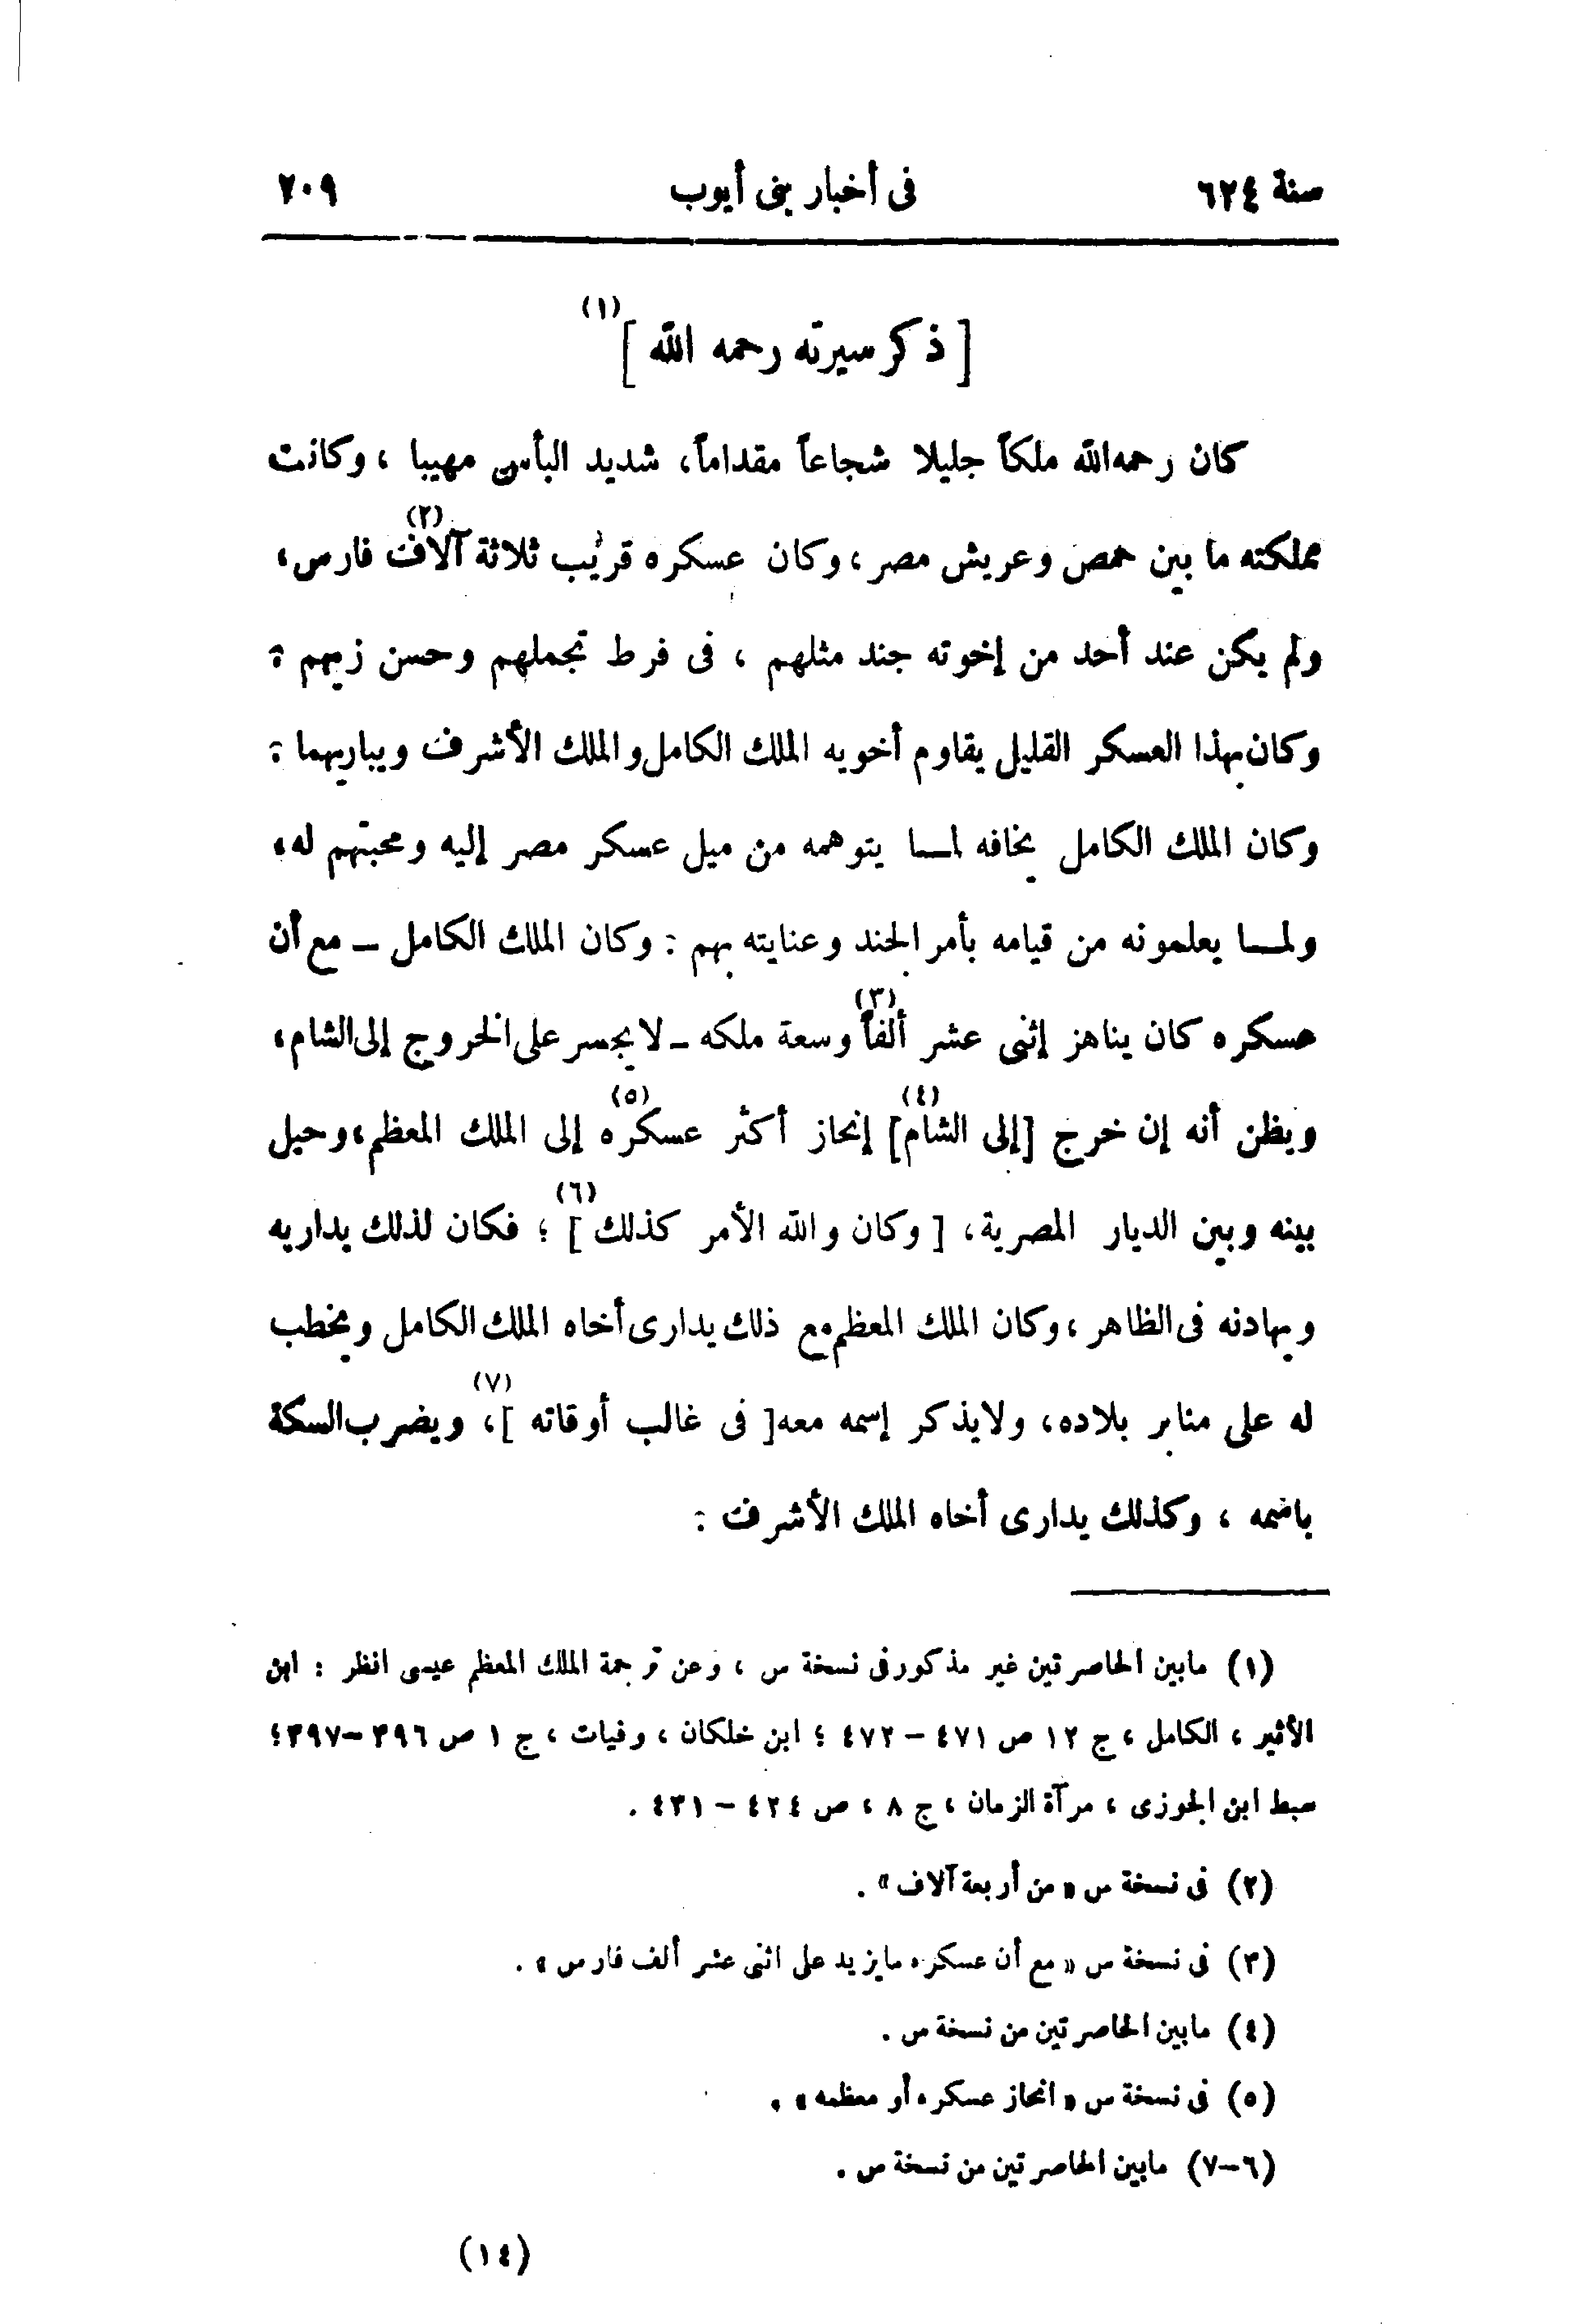 سنة ٦٢٤ فى أخبار بنى أيوب ٢٠٩
[ ذكر سيرته رحمه الله ] (١)
كان رحمه الله ملكاً جليلا شجاعاً مقداماً، شديد البأس مهيبا ، وكانت
مملكته ما بين حمص وعريش مصر ، وكان عسكره قريب ثلاثة آلاف (٢) فارس،
ولم يكن عند أحد من إخوته جند مثلهم ، فى فرط تجملهم وحسن زيهم :
وكان بهذا العسكر القليل يقاوم أخويه الملك الكامل والملك الأشرف ويباريهما :
وكان الملك الكامل يخافه لما يتوهمه من ميل عسكر مصر إليه ومحبتهم له،
ولما يعلمونه من قيامه بأمر الجند وعنايته بهم : وكان الملك الكامل – مع أن
عسكره كان يناهز إثنى عشر ألفاً (٣) وسعة ملكه – لا يجسر على الخروج إلى الشام،
ويظن أنه إن خرج [إلى الشام] (٤) إنحاز أكثر عسكره (٥) إلى الملك المعظم، وحيل
بينه وبين الديار المصرية، [ وكان والله الأمر كذلك ] (٦) ؛ فكان لذلك يداريه
ويهادنه فى الظاهر ، وكان الملك المعظم مع ذلك يدارى أخاه الملك الكامل ويخطب
له على منابر بلاده، ولا يذكر إسمه معه [ فى غالب أوقاته ] (٧)، ويضرب السكة
باسمه ، وكذلك يدارى أخاه الملك الأشرف :
(١) مابين الحاصرتين غير مذكور فى نسخة س ، وعن ترجمة الملك المعظم عيسى انظر : ابن
الأثير ، الكامل ، ج ١٢ ص ٤٧١ – ٤٧٢ ؛ ابن خلكان ، وفيات ، ج ١ ص ٣٩٦ – ٣٩٧؛
سبط ابن الجوزى ، مرآة الزمان ، ج ٨ ، ص ٤٢٤ – ٤٣١ .
(٢) فى نسخة س « من أربعة آلاف » .
(٣) فى نسخة س « مع أن عسكره مايزيد على اثنى عشر ألف فارس » .
(٤) مابين الحاصرتين من نسخة س .
(٥) فى نسخة س « انحاز عسكره أو معظمه » .
(٦–٧) مابين الحاصرتين من نسخة س .
(١٤)